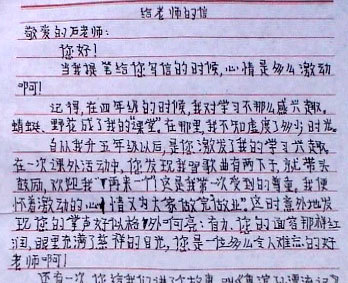 给老师的信
敬爱的石老师：
您好！
当我提笔给您写信的时候，心情是多么激动
啊！
记得，在四年级的时候，我对学习不那么感兴趣。
蜻蜓、野花成了我的“课堂”。在那里，我不知虚度了多少时光。
自从我升五年级以后，是您激发了我的学习兴趣。
在一次课外活动中，您发现我唱歌曲有两下子，就带头
鼓励，欢迎我“再来一个”这是我第一次受到的尊重，我便
怀着激动的心情又为大家做完做业”。这时意外地发
现您的掌声好似格外响亮：有力，您的面容那样红
润，眼里充满了慈祥的目光，您是一位多么令人难忘的好
老师啊！
还有一次，您给我们讲了故事，叫《鲁滨逊漂流记》